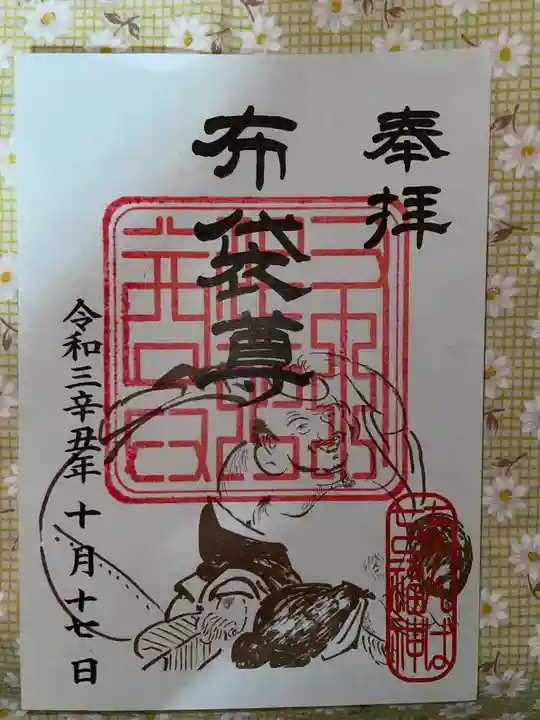 奉拝
布袋尊
令和三辛丑年 十月十七日
七福神